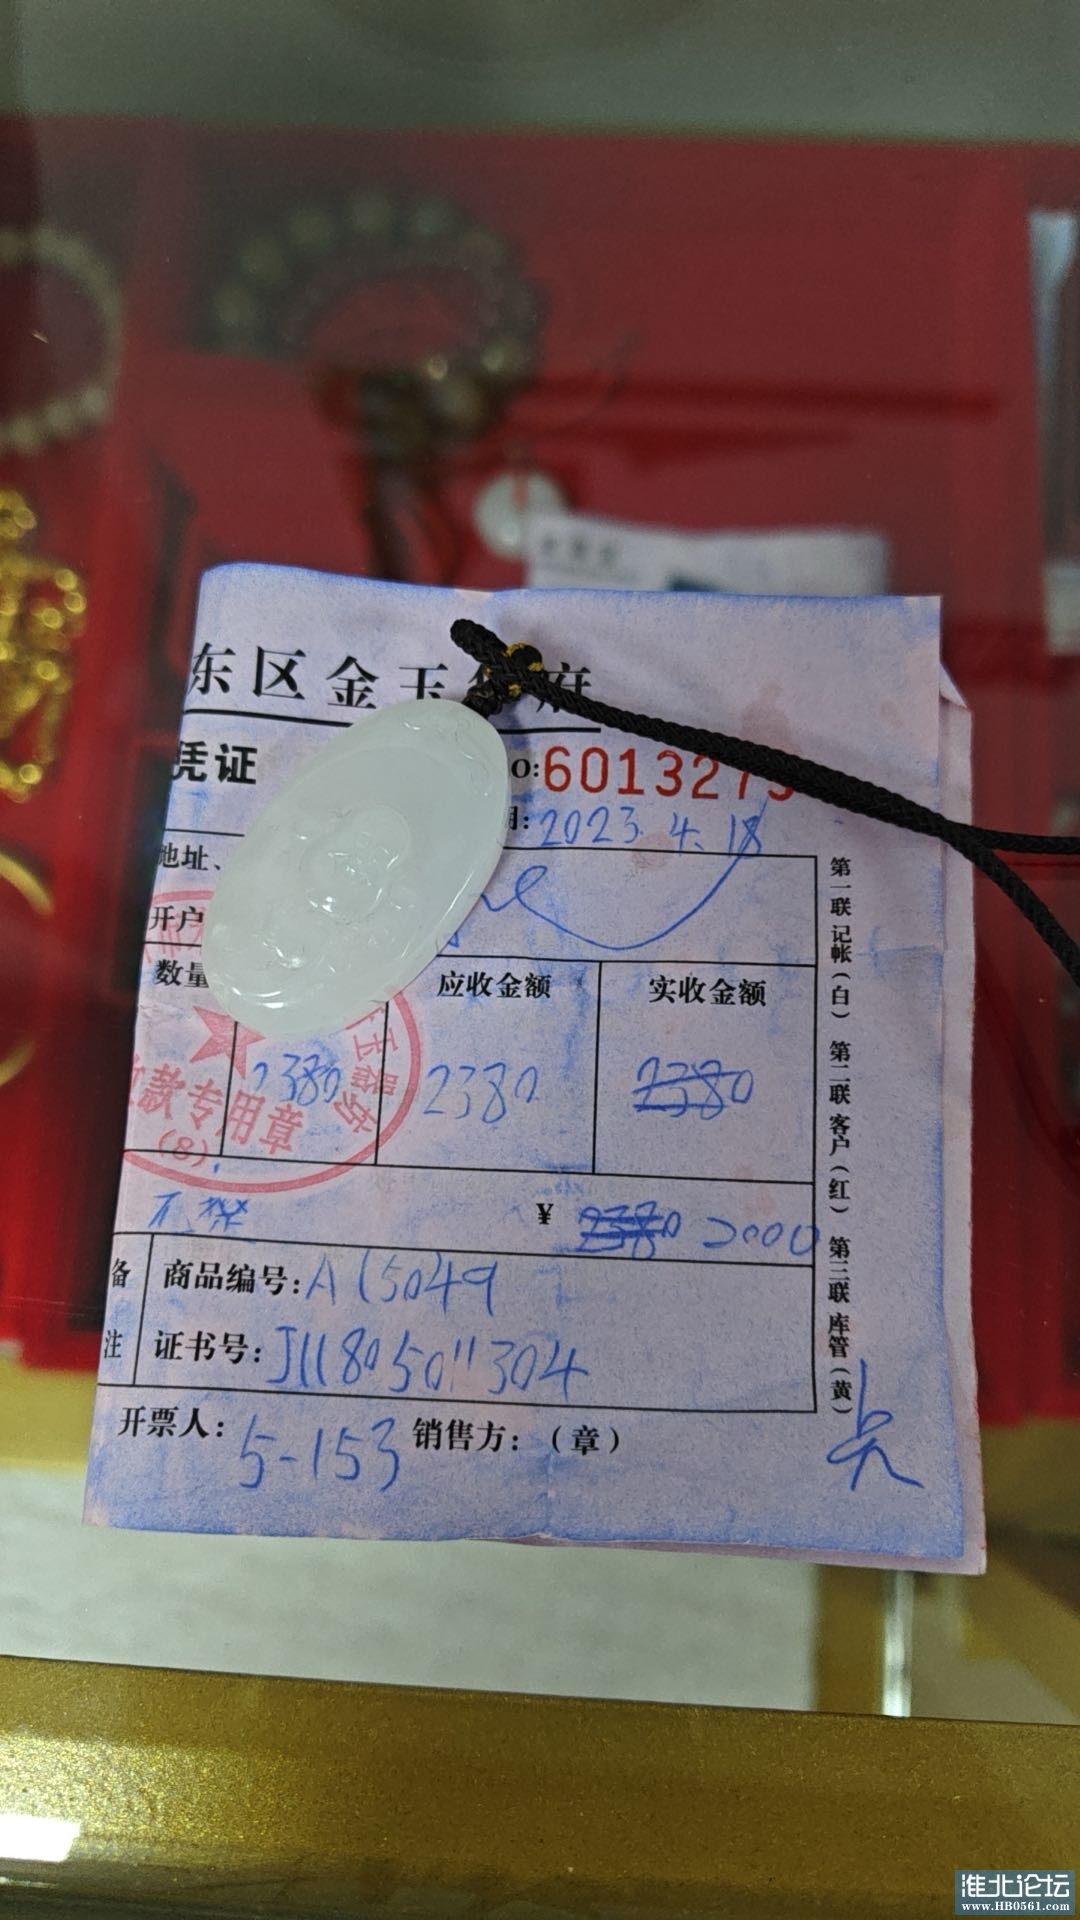 东区金玉
凭证
O:601327
期:2023.4.18
地址、
开户
数量 应收金额 实收金额
2380 2380 2380
收款专用章
(8)
¥ 2000
备注
商品编号:A15049
证书号:J11805011304
开票人:5-153 销售方:(章)
第一联 记帐(白) 第二联 客户(红) 第三联 库管(黄)
淮北论坛
www.HB0561.com